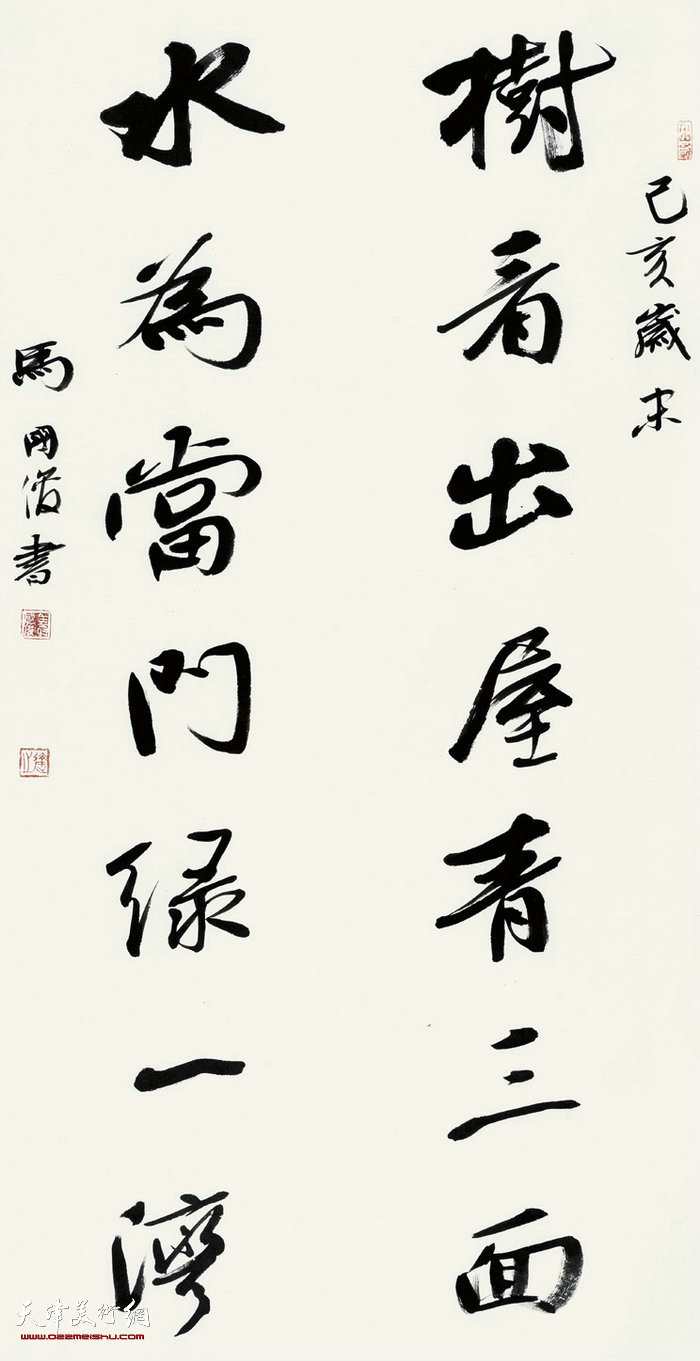 己亥歲末
樹看出屋青三面
水為當門緑一灣
馬國俊書
天津美術網
www.022meishu.com